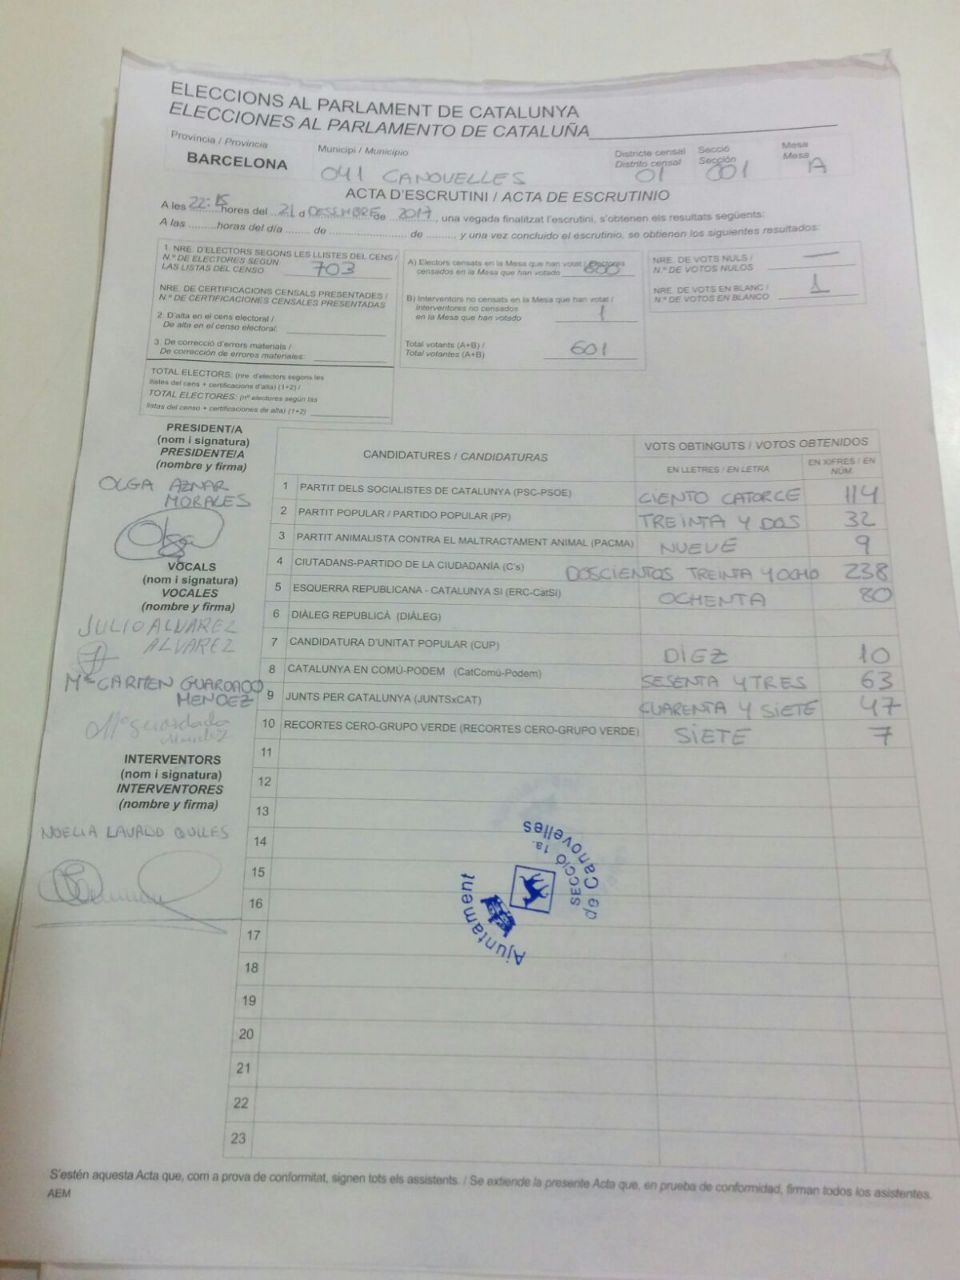 ELECCIONS AL PARLAMENT DE CATALUNYA
ELECCIONES AL PARLAMENTO DE CATALUÑA
Província / Provincia
BARCELONA
Municipi / Municipio
041 CANOVELLES
Districte censal
Distrito censal
01
Secció
Sección
001
Mesa
Mesa
A
ACTA D'ESCRUTINI / ACTA DE ESCRUTINIO
A les 22:15 hores del 21 d DESEMBRE de 2017, una vegada finalitzat l'escrutini, s'obtenen els resultats següents:
A las ........horas del día ....... de ........................... de ....... y una vez concluido el escrutinio, se obtienen los siguientes resultados:
1. NRE. D'ELECTORS SEGONS LES LLISTES DEL CENS /
N.º DE ELECTORES SEGÚN
LAS LISTAS DEL CENSO 703
NRE. DE CERTIFICACIONS CENSALS PRESENTADES /
N.º DE CERTIFICACIONES CENSALES PRESENTADAS
2. D'alta en el cens electoral /
De alta en el censo electoral:
3. De correcció d'errors materials /
De corrección de errores materiales:
TOTAL ELECTORS: (nre. d'electors segons les
llistes del cens + certificacions d'alta) (1+2) /
TOTAL ELECTORES: (nº electores según las
listas del censo + certificaciones de alta) (1+2)
A) Electors censats en la Mesa que han votat / Electores
censados en la Mesa que han votado 600
B) Interventors no censats en la Mesa que han votat /
Interventores no censados
en la Mesa que han votado 1
Total votants (A+B) /
Total votantes (A+B) 601
NRE. DE VOTS NULS /
N.º DE VOTOS NULOS —
NRE. DE VOTS EN BLANC /
N.º DE VOTOS EN BLANCO 1
PRESIDENT/A
(nom i signatura)
PRESIDENTE/A
(nombre y firma)
OLGA AZNAR
MORALES
Olga
VOCALS
(nom i signatura)
VOCALES
(nombre y firma)
JULIO ALVAREZ
ALVAREZ
Mª CARMEN GUARDADO
MENDEZ
Mª Guardado
INTERVENTORS
(nom i signatura)
INTERVENTORES
(nombre y firma)
NOELIA LAVADO
CANDIDATURES / CANDIDATURAS
VOTS OBTINGUTS / VOTOS OBTENIDOS
EN LLETRES / EN LETRA
EN XIFRES / EN NÚM.
1 PARTIT DELS SOCIALISTES DE CATALUNYA (PSC-PSOE) CIENTO CATORCE 114
2 PARTIT POPULAR / PARTIDO POPULAR (PP) TREINTA Y DOS 32
3 PARTIT ANIMALISTA CONTRA EL MALTRACTAMENT ANIMAL (PACMA) NUEVE 9
4 CIUTADANS-PARTIDO DE LA CIUDADANÍA (C's) DOSCIENTOS TREINTA Y OCHO 238
5 ESQUERRA REPUBLICANA - CATALUNYA SI (ERC-CatSí) OCHENTA 80
6 DIÀLEG REPUBLICÀ (DIÀLEG)
7 CANDIDATURA D'UNITAT POPULAR (CUP) DIEZ 10
8 CATALUNYA EN COMÚ-PODEM (CatComú-Podem) SESENTA Y TRES 63
9 JUNTS PER CATALUNYA (JUNTSxCAT) CUARENTA Y SIETE 47
10 RECORTES CERO-GRUPO VERDE (RECORTES CERO-GRUPO VERDE) SIETE 7
11
12
13
14
15
16
17
18
19
20
21
22
23
Ajuntament
de Canovelles
SECCIÓ 1a.
S'estén aquesta Acta que, com a prova de conformitat, signen tots els assistents. / Se extiende la presente Acta que, en prueba de conformidad, firman todos los asistentes.
AEM